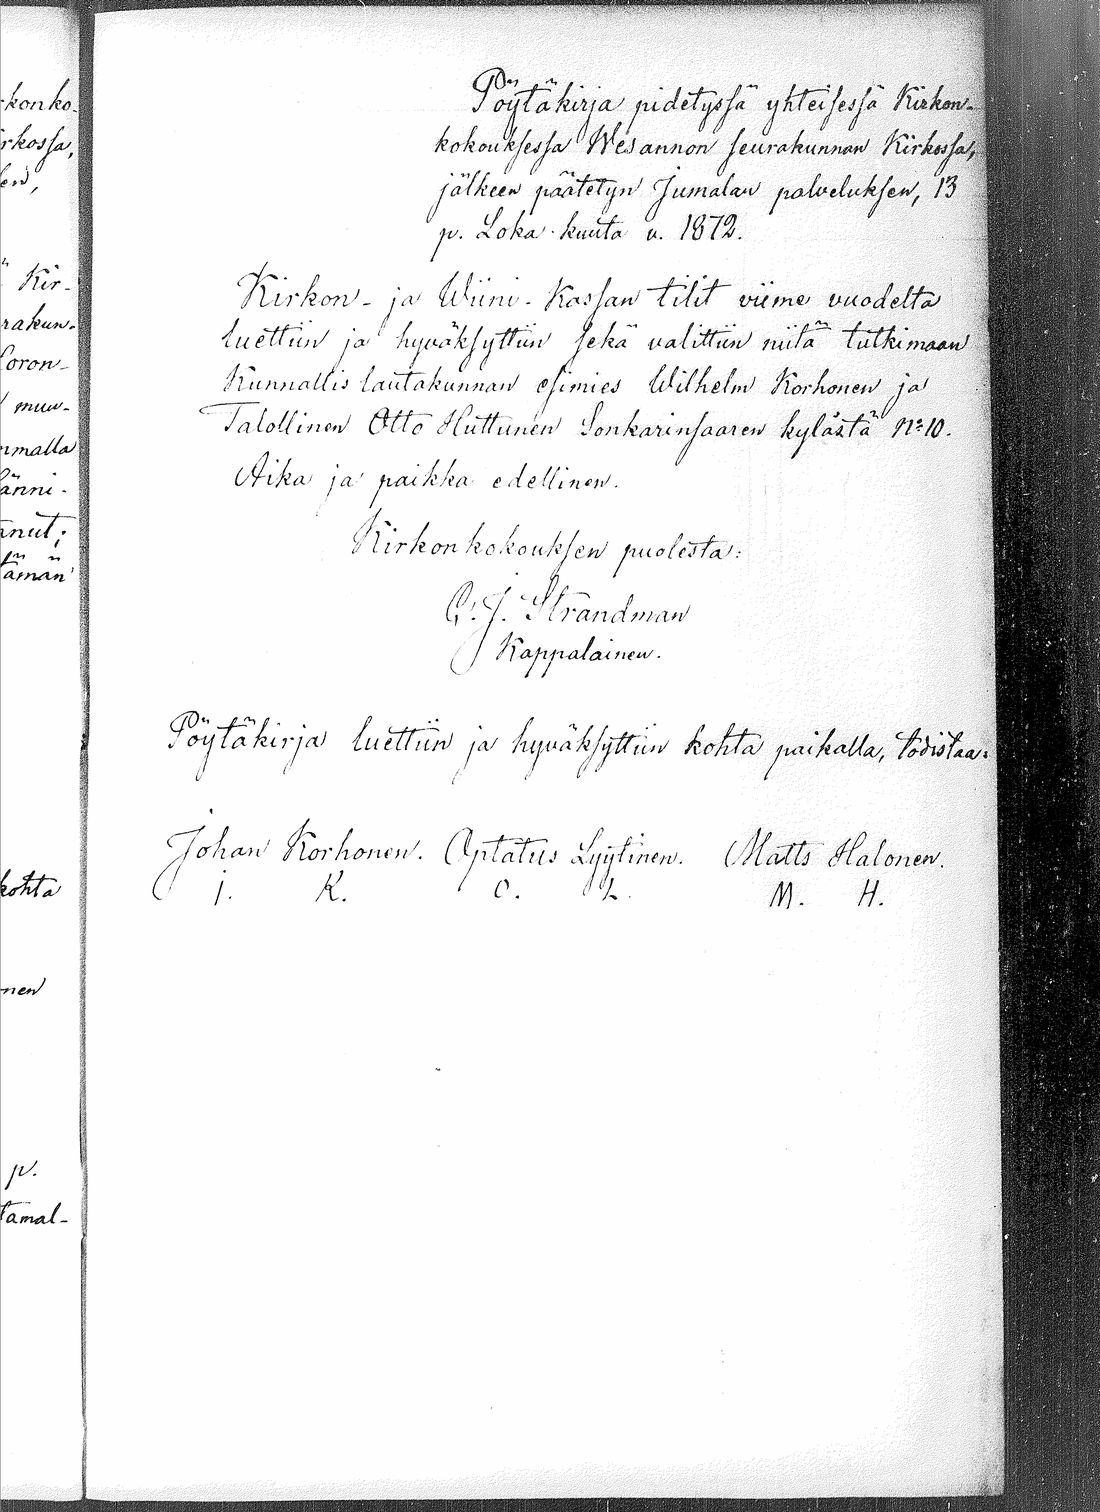 Pöytäkirja pidetyssä yhteisessä Kirkon-
kokouksessa Wesannon seurakunnan Kirkossa,
jälkeen päätetyn Jumalan palveluksen, 13
p. Loka-kuuta v. 1872.
Kirkon- ja Wiini-Kassan tilit viime vuodelta
luettiin ja hyväksyttiin sekä valittiin niitä tutkimaan
Kunnallislautakunnan esimies Wilhelm Korhonen ja
Talollinen Otto Huttunen Sonkarinsaaren kylästä No 10.
Aika ja paikka edellinen.
Kirkonkokouksen puolesta:
G. J. Strandman
Kappalainen.
Pöytäkirja luettiin ja hyväksyttiin kohta paikalla, todistaa:
Johan Korhonen. Optatus Lyytinen. Matts Halonen.
J. K. O. L. M. H.
-konko-
rkossa,
sen,
Kir-
rakun-
Coron-
muu-
mmalla
länni-
anut;
tämän
kohta
nen
p.
tamal-